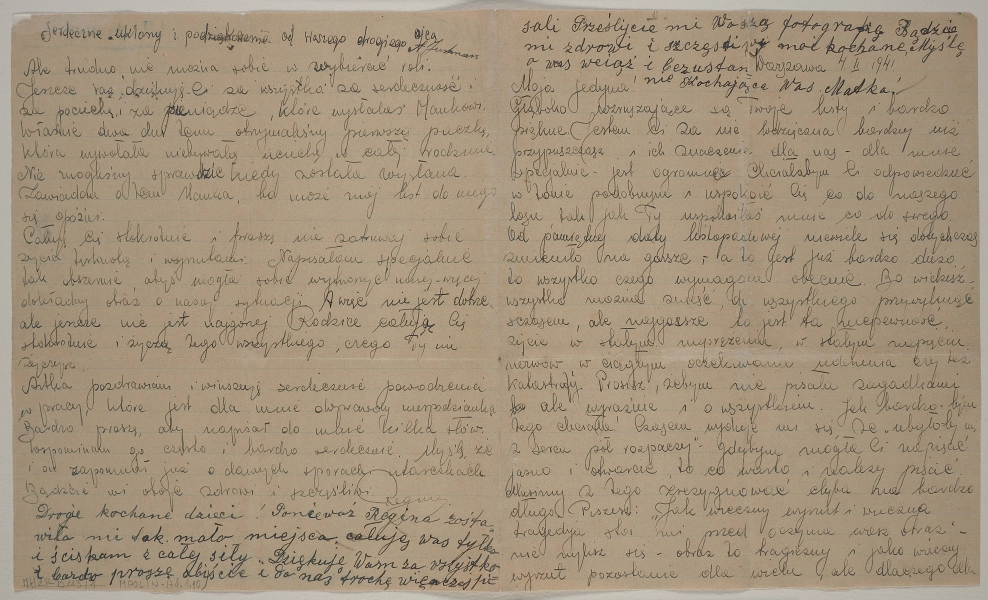 Serdeczne ukłony i podziękowanie od Waszego drogiego ojca
Ale trudno, nie można sobie w wybierać roli.
Jeszcze raz dziękuję Ci za wszystko za serdeczność
za pociechę i za pieniądze, które wysłałaś Mańkowi.
Właśnie dwa dni temu otrzymaliśmy pierwszą paczkę,
która wywołała niebywałą uciechę w całej rodzinie.
Nie mogliśmy sprawdzić kiedy została wysłana
Zawiadom o tem Mańka, bo może mój list do niego
się opóźni.
Całuję Cię stokrotnie i proszę nie zatruwaj sobie
życia troską i wyrzutami. Napisałam specjalnie
tak obszernie, abyś mogła sobie wytworzyć mniej-więcej
dokładny obraz o naszej sytuacji. A więc nie jest dobrze,
ale jeszcze nie jest najgorzej Rodzice całują Cię
stokrotnie i życzą tego wszystkiego, czego Ty im
życzysz.
pozdrawiam i winszuję serdecznie powodzenia
w pracy, które jest dla mnie niespodzianką
Bardzo proszę, aby napisał do mnie kilka słów.
Wspominam go często i bardzo serdecznie. Myślę, że
i on zapomniał już o dawnych sporach i utarczkach
Bądźcie mi oboje zdrowi i szczęśliwi
Regina
Drogie kochane dzieci! Ponieważ Regina zosta-
wiła mi tak mało miejsca, całuję was tylko
i ściskam z całej siły. Dziękuję Wam za wszystko
i bardzo proszę abyście i do nas trochę więcej pi-
sali Prześlijcie mi Waszą fotografię Bądźcie
mi zdrowi i szczęśliwi moi kochane, Myślę
o was wciąż i bezustan Warszawa 4 II 1941
nie Kochająca Was Matka
Moja jedyna!
Głęboko wzruszające są Twoje listy i bardzo
piękne. Jestem Ci za nie wdzięczna bardziej niż
przypuszczasz i ich znaczenie dla nas - dla mnie
specjalnie - jest ogromne. Chciałabym Ci odpowiedzieć
w tonie podobnym i uspokoić Cię co do naszego
losu tak jak Ty uspokoiłaś mnie co do swego.
Od pamiętnej daty listopadowej niewiele się dotychczas
zmieniło na gorsze, - a to jest już bardzo dużo
to wszystko czego wymagam obecnie. Bo większość
wszystko można znieść, do wszystkiego przywyknąć
z czasem, ale najgorsze to jest ta niepewność,
życie w stałym naprężeniu, w stałym napięciu
nerwów w ciągłym oczekiwaniu czy też
katastrofy. Prosisz, żebym nie pisała zagadkami
ale wyraźnie i o wszystkiem. Jak bardzo-bym
tego chciała! Czasem wydaje mi się, że „ubyłoby mi
z serca pół rozpaczy" - gdybym mogła Ci napisać
jasno i otwarcie to co warto i należy pisać.
Musimy z tego zrezygnować chyba na bardzo
długo. Piszesz: „Jak wieczny wyrzut i wieczna
tragedja stoi mi przed oczyma wasz obraz -
nie łudź się - obraz to tragiczny i jako wieczny
wyrzut pozostanie dla wielu, ale dlaczego dla